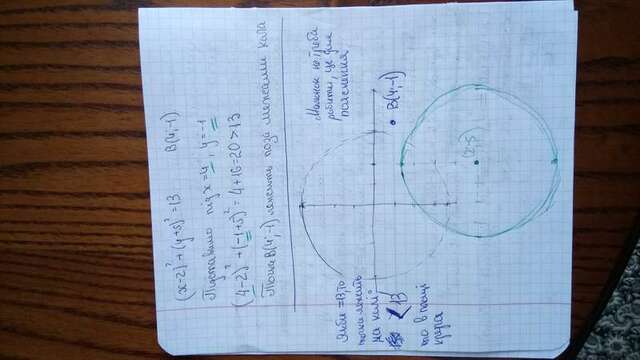 (x-2)²+(y+5)²=13 B(4;-1)
Підставимо під x=4, y=-1
(4-2)²+(-1+5)²=4+16=20>13
Точка B(4;-1) лежить поза межами кола
Малюнок не треба
робити, це для
пояснення
B(4;-1)
(2;-5)
Якби =13, то
точка лежить
на колі
<13
то в площі
круга